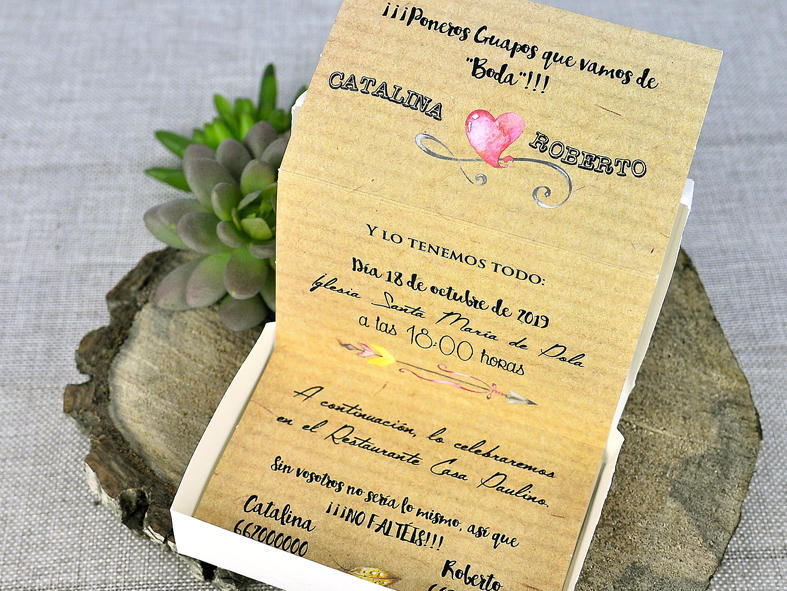 ¡¡¡Poneros Guapos que vamos de
"Boda"!!!
CATALINA
ROBERTO
Y LO TENEMOS TODO:
Día 18 de octubre de 2019
Iglesia Santa María de Pola
a las 18:00 horas
A continuación, lo celebraremos
en el Restaurante Casa Paulino.
Sin vosotros no sería lo mismo, así que
¡¡¡NO FALTÉIS!!!
Catalina
662000000
Roberto